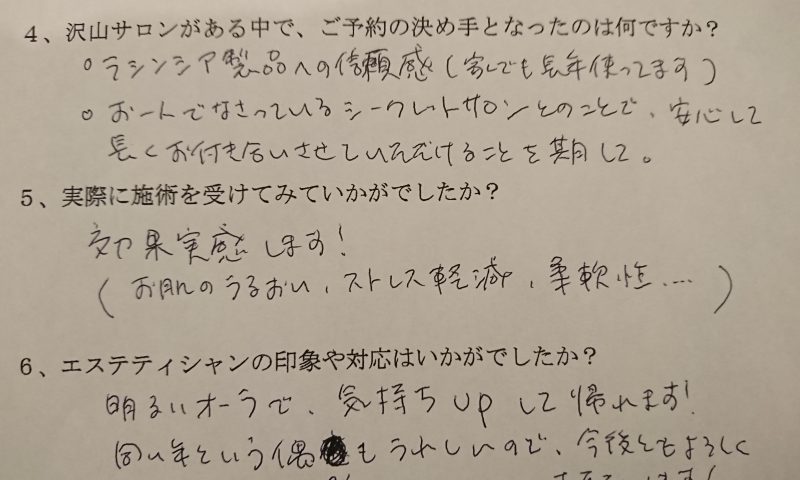 4、沢山サロンがある中で、ご予約の決め手となったのは何ですか?
○ラシンシア製品への信頼感(家でも長年使ってます)
○お一人でなさっているシークレットサロンとのことで、安心して
長くお付き合いさせていただけることを期して。
5、実際に施術を受けてみていかがでしたか?
効果実感します!
(お肌のうるおい、ストレス軽減、柔軟性……)
6、エステティシャンの印象や対応はいかがでしたか?
明るいオーラで、気持ちupして帰れます!
同い年という偶もうれしいので、今後ともよろしく